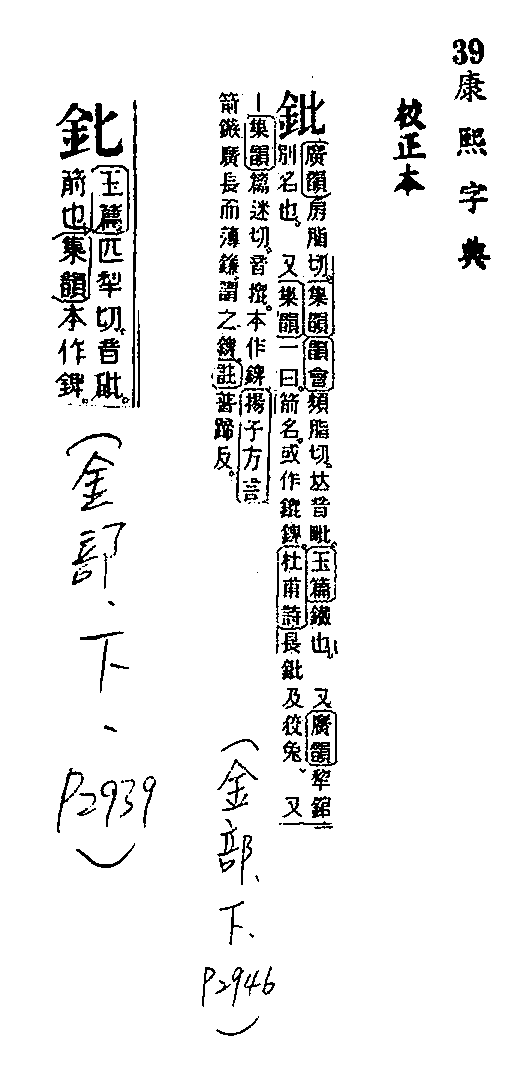 39康熙字典
校正本
鈚
廣韻房脂切。集韻韻會頻脂切。𡘋音毗。玉篇鐵也。又廣韻犂錧
別名也。又集韻一曰。箭名。或作鎞錍。杜甫詩長鈚及狡兔。又
集韻篇迷切。音㨢。本作錍。揚子方言
箭鏃廣長而薄鎌。謂之錍。註普蹄反。
(金部、下、
P2946)
鈋
玉篇匹犁切。音砒。
箭也。集韻本作錍。
(金部、下、
P2939)